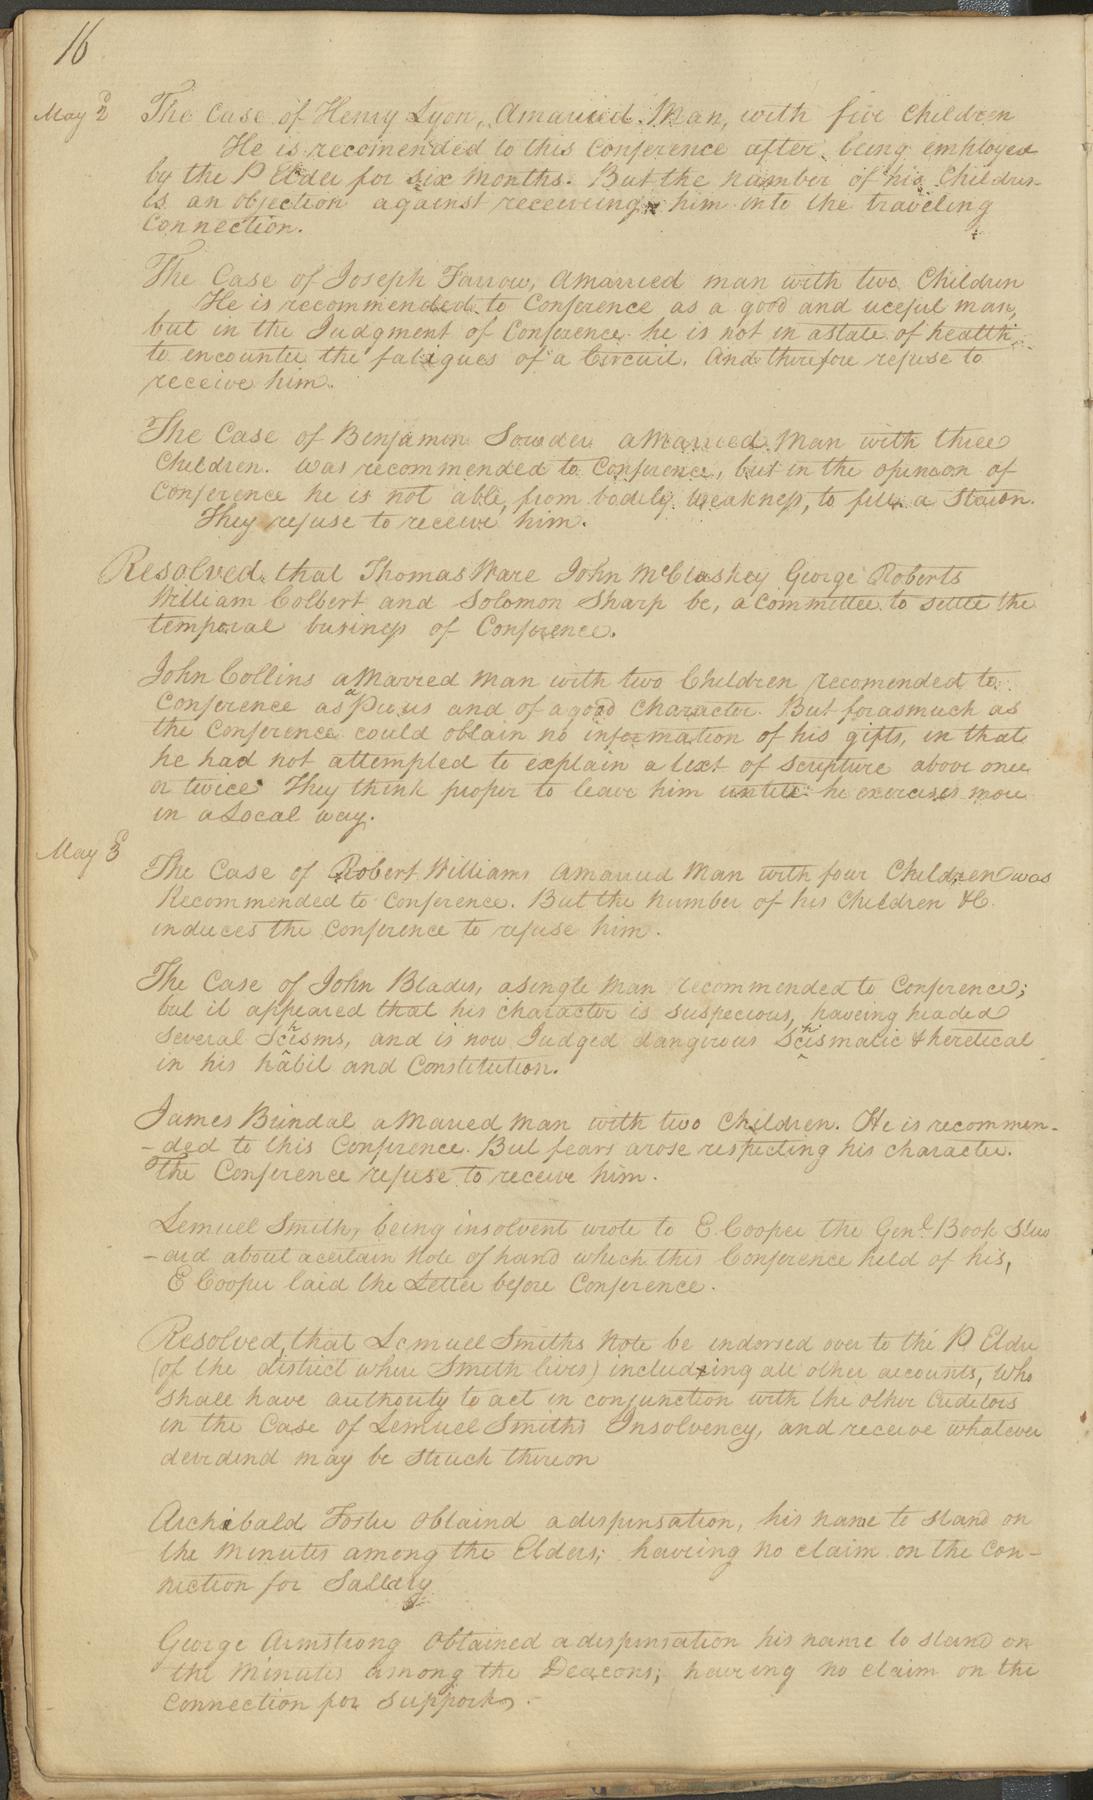 16
May 2d The Case of Henry Lyon, A married Man, with five Children
He is recomended to this Conference after being employed
by the P Elder for six Months. But the number of his Children
is an objection against receiveing him into the traveling
Connection.
The Case of Joseph Farrow, A married man with two Children
He is recommended to Conference as a good and uceful man,
but in the Judgment of Conference he is not in a state of health
to encounter the fatigues of a Circuit. And therefore refuse to
receive him.
The Case of Benjamin Sowden a Married Man with three
Children. Was recommended to Conference, but in the opinion of
Conference he is not able, from bodily weakness, to fill a Staion.
They refuse to receive him.
Resolved that Thomas Ware John McClaskey George Roberts
William Colbert and Solomon Sharp be, a Committee to settle the
temporal business of Conference.
John Collins a Married Man with two Children recomended to
Conference as a Pious and of a good Character. But forasmuch as
the Conference could obtain no information of his gifts, in that
he had not attempted to explain a text of scripture above once
or twice They think proper to leave him untill he exercises more
in a Local way.
May 3d
The Case of Robert Williams A married Man with four Children was
Recommended to Conference. But the Number of his Children &c.
induces the Conference to refuse him.
The Case of John Blades, a single Man recommended to Conference;
but it appeared that his character is suspecious, haveing headed
several Schisms, and is now Judged dangirous Schismatic & heretical
in his habit and Constitution.
James Brindal a Maried Man with two Children. He is recommen-
-ded to this Conference. But fears arose respecting his character.
The Conference refuse to receive him.
Lemuel Smith, being insolvent wrote to E. Cooper the Genl. Book Stew
-ard about a certain Note of hand which this Conference held of his,
E Cooper laid the Letter before Conference.
Resolved, that Lemuel Smiths Note be endorsed over to the P Elder
(of the district where Smith lives) including all other accounts, Who
shall have authority to act in conjunction with the other Creditors
in the Case of Lemuel Smiths Insolvency, and receive whatever
devidend may be struck thereon
Archibald Foster Obtaind a dispensation, his name to stand on
the Minutes among the Elders; haveing no claim on the Con-
nection for Sallary
George Armstrong Obtained a dispensation his name to stand on
the Minutes among the Deacons; having no claim on the
Connection for support.